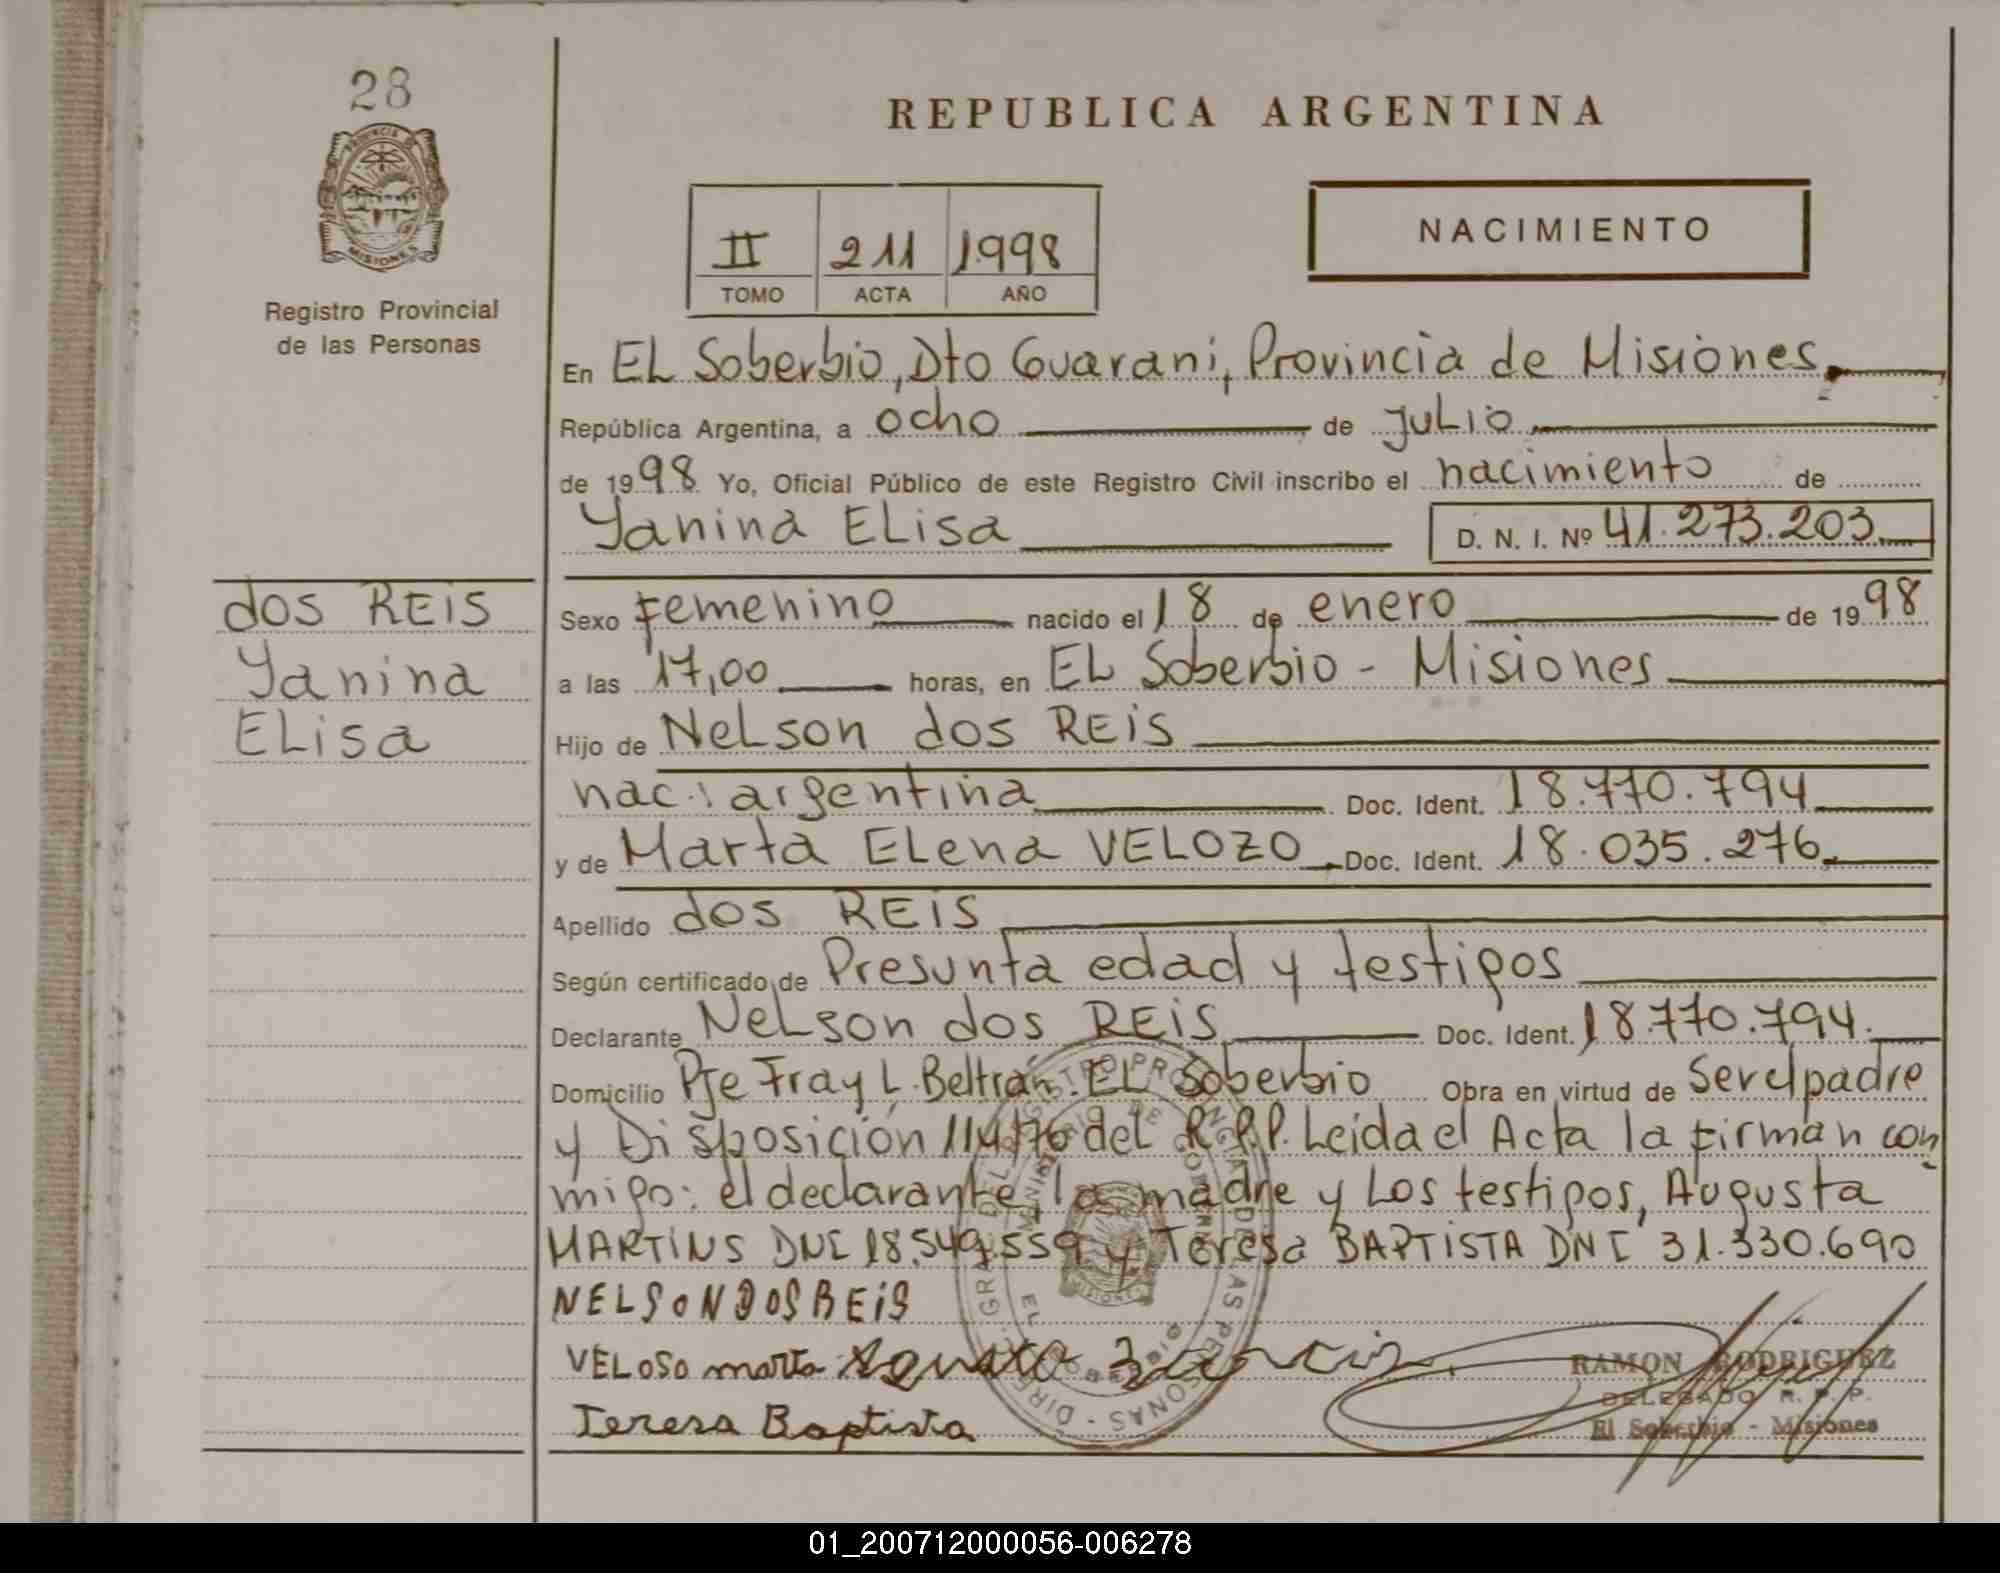 28
PROVINCIA DE
MISIONES
Registro Provincial
de las Personas
REPUBLICA ARGENTINA
II 211 1998
TOMO ACTA AÑO
NACIMIENTO
En EL Soberbio, Dto Guarani, Provincia de Misiones.
República Argentina, a ocho de julio
de 1998 Yo, Oficial Público de este Registro Civil inscribo el nacimiento de
Yanina ELisa D. N. I. Nº 41.273.203
dos REIS
Yanina
ELisa
Sexo femenino nacido el 18 de enero de 1998
a las 17,00 horas, en EL Soberbio - Misiones
Hijo de NeLson dos REIS
nac: argentina Doc. Ident. 18.770.794
y de Marta ELena VELOZO Doc. Ident. 18.035.276
Apellido dos REIS
Según certificado de Presunta edad y testigos
Declarante NeLson dos REIS Doc. Ident. 18.770.794.
Domicilio Pje Fray L. Beltrán. EL Soberbio Obra en virtud de Ser el padre
y Disposición 114/76 del R.P.P. Leida el Acta la firman con
migo: el declarante, la madre y Los testigos, Augusta
MARTINS DNI 18.549.559 y Teresa BAPTISTA DNI 31.330.690
NELSON DOS REIS
VELOSO marta
Teresa Baptista
RAMON RODRIGUEZ
DELEGADO R. P. P.
El Soberbio - Misiones
01_200712000056-006278